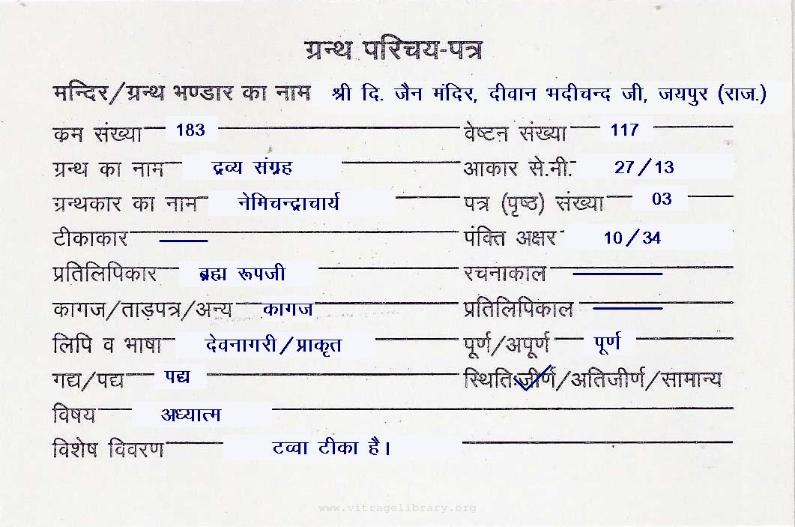 ग्रन्थ परिचय-पत्र
मन्दिर/ग्रन्थ भण्डार का नाम श्री दि. जैन मंदिर, दीवान भदीचन्द जी, जयपुर (राज.)
कम संख्या 183 वेष्टन संख्या 117
ग्रन्थ का नाम द्रव्य संग्रह आकार से.नी. 27/13
ग्रन्थकार का नाम नेमिचन्द्राचार्य पत्र (पृष्ठ) संख्या 03
टीकाकार — पंक्ति अक्षर 10/34
प्रतिलिपिकार ब्रह्म रूपजी रचनाकाल —
कागज/ताड़पत्र/अन्य कागज प्रतिलिपिकाल —
लिपि व भाषा देवनागरी/प्राकृत पूर्ण/अपूर्ण पूर्ण
गद्य/पद्य पद्य स्थिति:जीर्ण/अतिजीर्ण/सामान्य
विषय अध्यात्म
विशेष विवरण टव्वा टीका है।
www.vitragelibrary.org